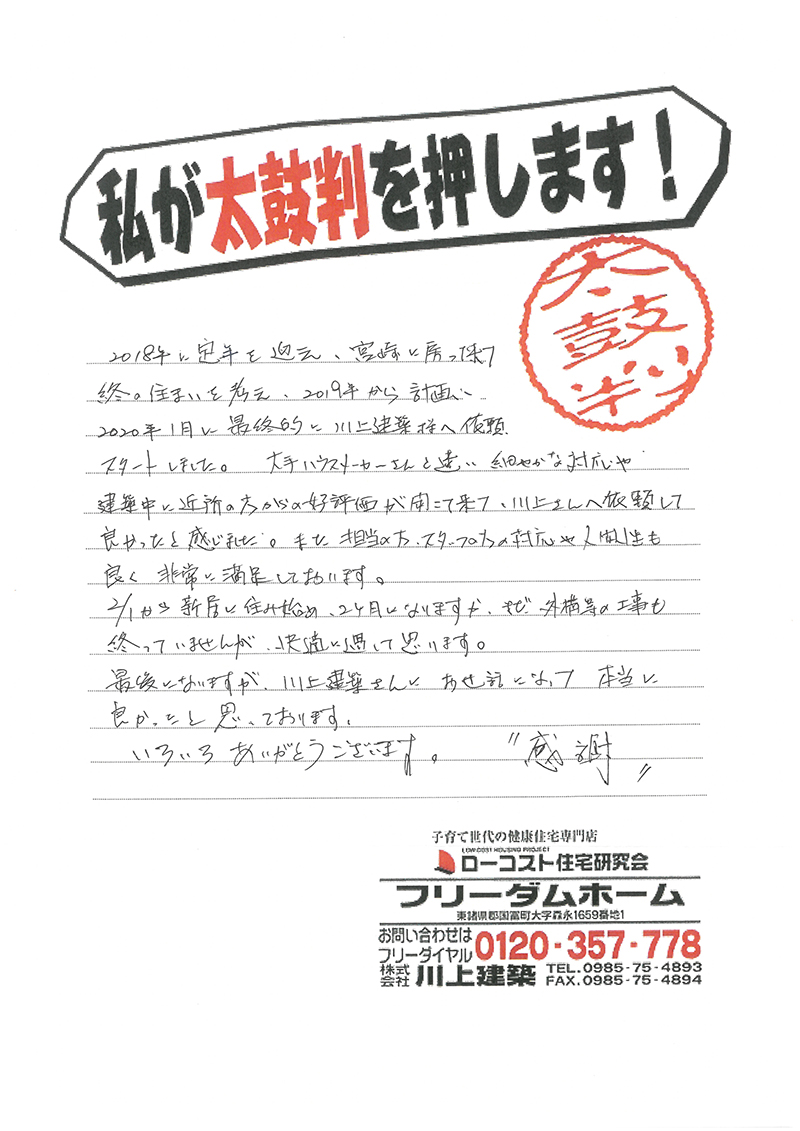 私が太鼓判を押します！
太鼓判
2018年に定年を迎え、宮崎に戻って来て
終の住まいを考え、2019年から計画し
2020年1月に最終的に川上建築様へ依頼
スタートしました。大手ハウスメーカーさんと違い細やかな対応や
建築中に近所の方からの好評価が聞こて来て、川上さんへ依頼して
良かったと感じました。また担当の方、スタッフの方の対応や人間性も
良く非常に満足しております。
2/1から新居に住み始め、2ヶ月になりますが、まだ外構等の工事も
終っていませんが、快適に過して思います。
最後になりますが、川上建築さんにお世話になって本当に
良かったと思っております。
いろいろありがとうございます。〝感謝〟
子育て世代の健康住宅専門店
LOW-COST HOUSING PROJECT
ローコスト住宅研究会
フリーダムホーム
東諸県郡国富町大字森永1659番地1
お問い合わせはフリーダイヤル 0120-357-778
株式会社 川上建築 TEL.0985-75-4893
FAX.0985-75-4894